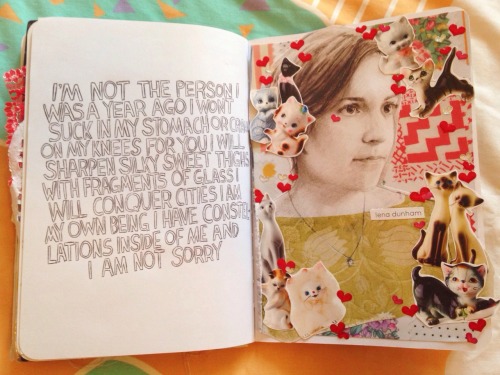 I'M NOT THE PERSON I
WAS A YEAR AGO I WONT
SUCK IN MY STOMACH OR
ON MY KNEES FOR YOU I WILL
SHARPEN SILKY SWEET THIGHS
WITH FRAGMENTS OF GLASS I
WILL CONQUER CITIES I AM
MY OWN BEING I HAVE CONSTEL-
LATIONS INSIDE OF ME AND
I AM NOT SORRY
lena dunham